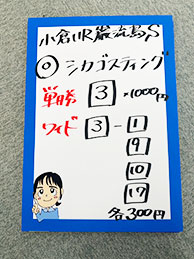 小倉11R巌流島S
◎シカゴスティング
単勝 3 ×1000円
ワイド 3 - 1
9
10
17
各300円